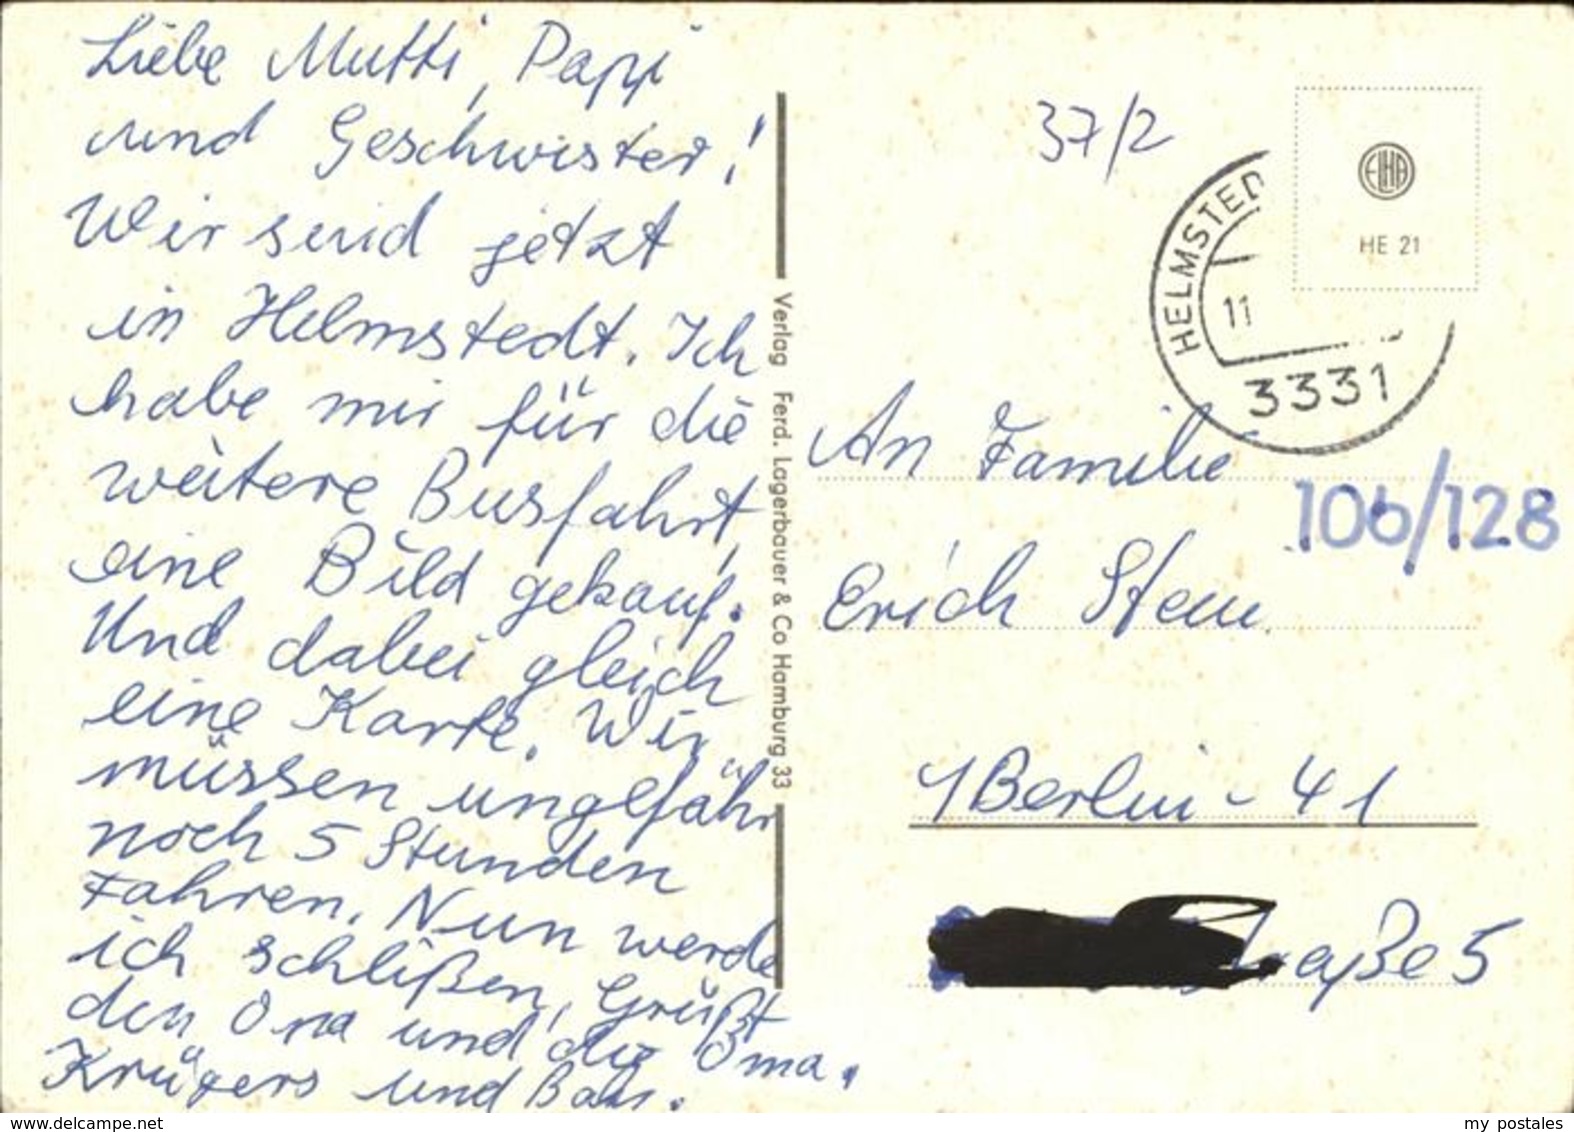 Liebe Mutti, Papi
und Geschwister!
Wir sind jetzt
in Helmstedt. Ich
habe mir für die
weitere Busfahrt,
eine Bild gekauf.
Und dabei gleich
eine Karte. Wir
müssen ungefähr
noch 5 Stunden
Fahren. Nun werde
ich schlißen, Grüßt
den Opa und die Oma.
Krügers und
Verlag Ferd. Lagerbauer & Co Hamburg 33
37/2
HELMSTED
11
3331
ELHA
HE 21
An Familie
106/128
Erich
1 Berlin - 41
5
www.delcampe.net
my postales